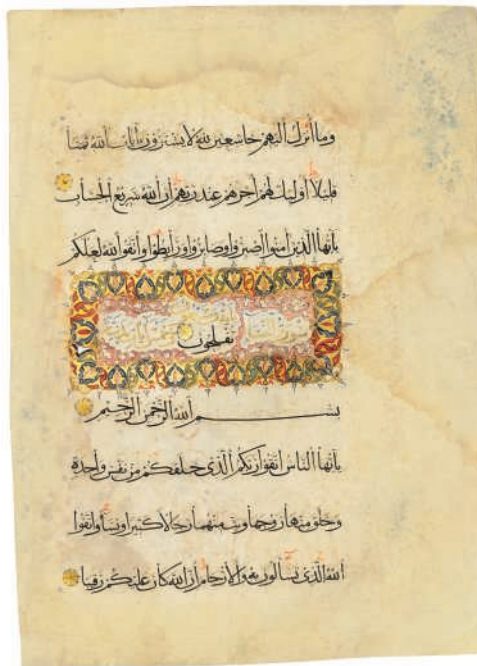 وما أنزل اليهم خاشعين لله لا يشترون بايات الله ثمنا
قليلا أوليك لهم أجرهم عند ربهم ان الله سريع الحساب
يا أيها الذين آمنوا اصبروا وصابروا ورابطوا واتقوا الله لعلكم
تفلحون
بسم الله الرحمن الرحيم
يا أيها الناس اتقوا ربكم الذى خلقكم من نفس واحدة
وخلق منها زوجها وبث منهما رجالا كثيرا ونسآء واتقوا
الله الذى تسآلون به والارحام ان الله كان عليكم رقيبا